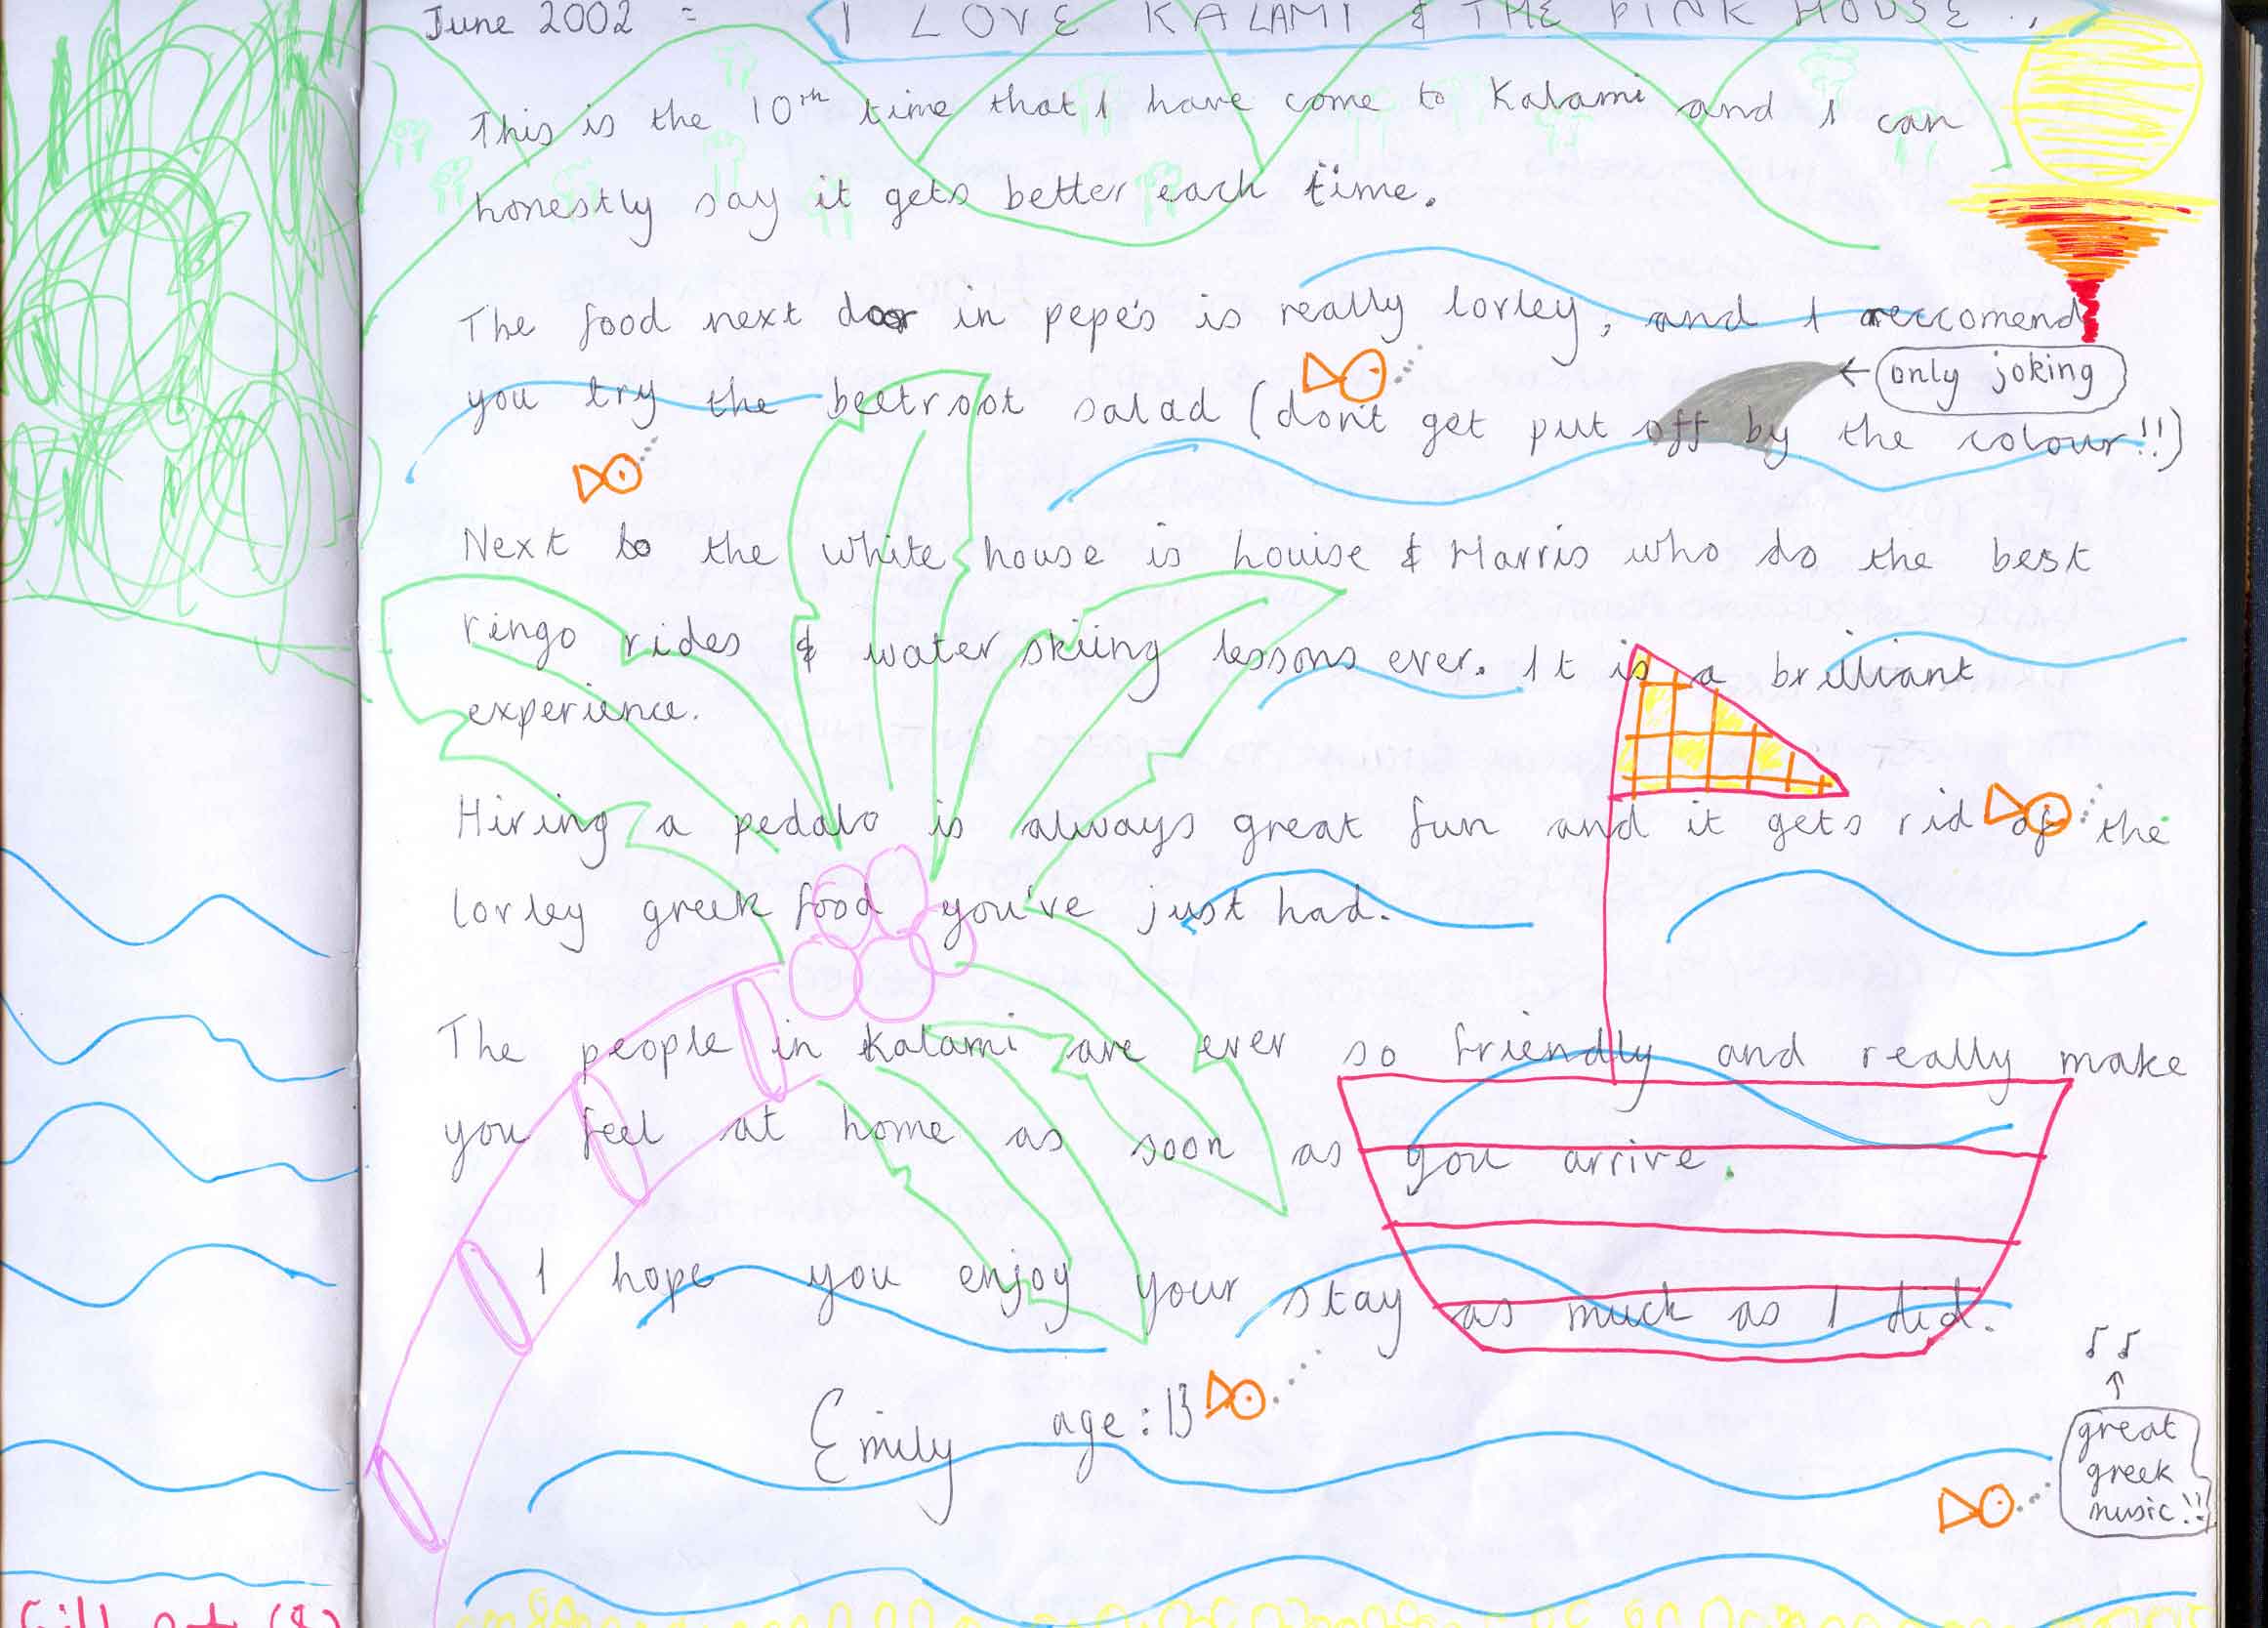 June 2002 = I LOVE KALAMI & THE PINK HOUSE..
This is the 10th time that I have come to Kalami and I can
honestly say it gets better each time.
The food next door in pepe's is really lovley, and I reccomend
you try the beetroot salad (don't get put off by the colour!!)
← only joking
Next to the white house is Louise & Harris who do the best
ringo rides & water skiing lessons ever. It is a brilliant
experience.
Hiring a pedalo is always great fun and it gets rid of the
lovley greek food you've just had.
The people in Kalami are ever so friendly and really make
you feel at home as soon as you arrive.
I hope you enjoy your stay as much as I did.
Emily age: 13
great
greek
music!!